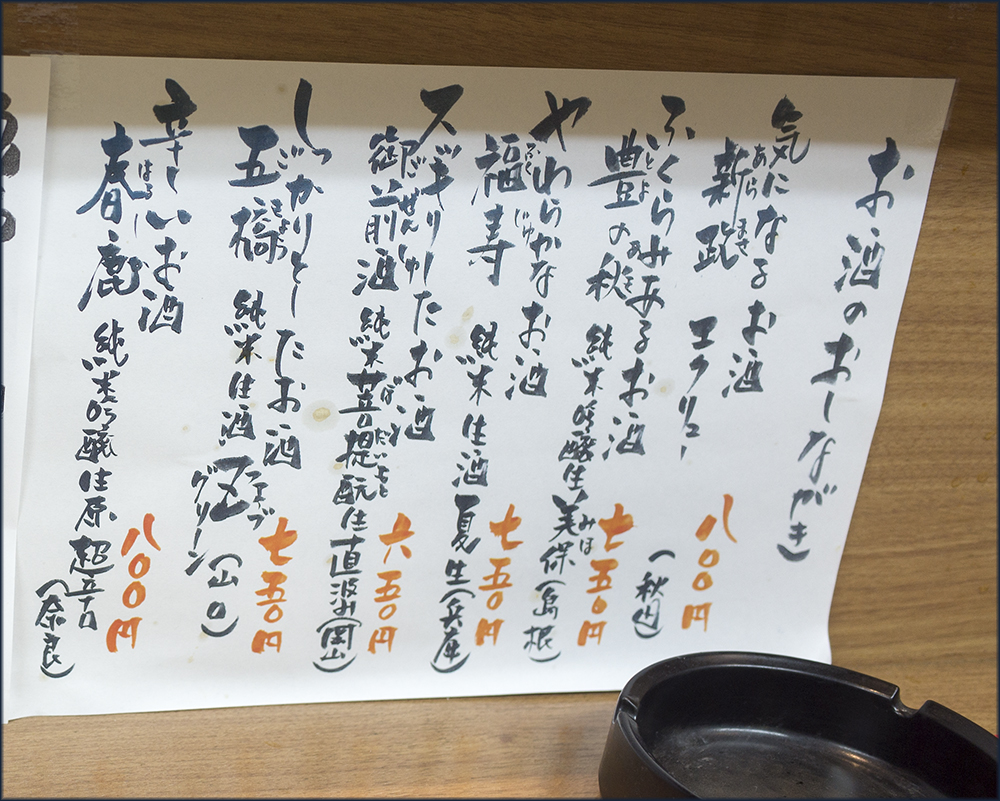 お酒のおしながき
気になるお酒
新政 エクリュー
あらまさ
(秋田)
八〇〇円
ふくらみある お酒
豊の秋 純米吟醸生 美保(島根)
とよ あき
みほ
七五〇円
やわらかなお酒
福寿 純米生酒 夏生(兵庫)
ふく じゅ
七五〇円
スッキリしたお酒
御前酒 純米菩提酛生直汲み(岡山)
ぜんしゅ
ぼだいもと
六五〇円
しっかりとしたお酒
五橋 純米生酒
グリーン (山口)
七五〇円
辛〜いお酒
春鹿 純米吟醸生原 超辛口
(奈良)
八〇〇円